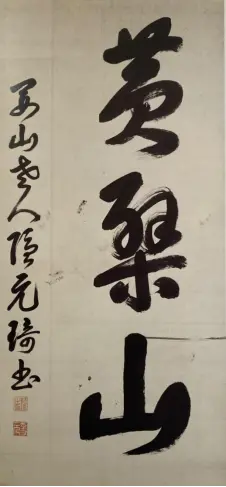 黃檗山
山老人隱元琦書